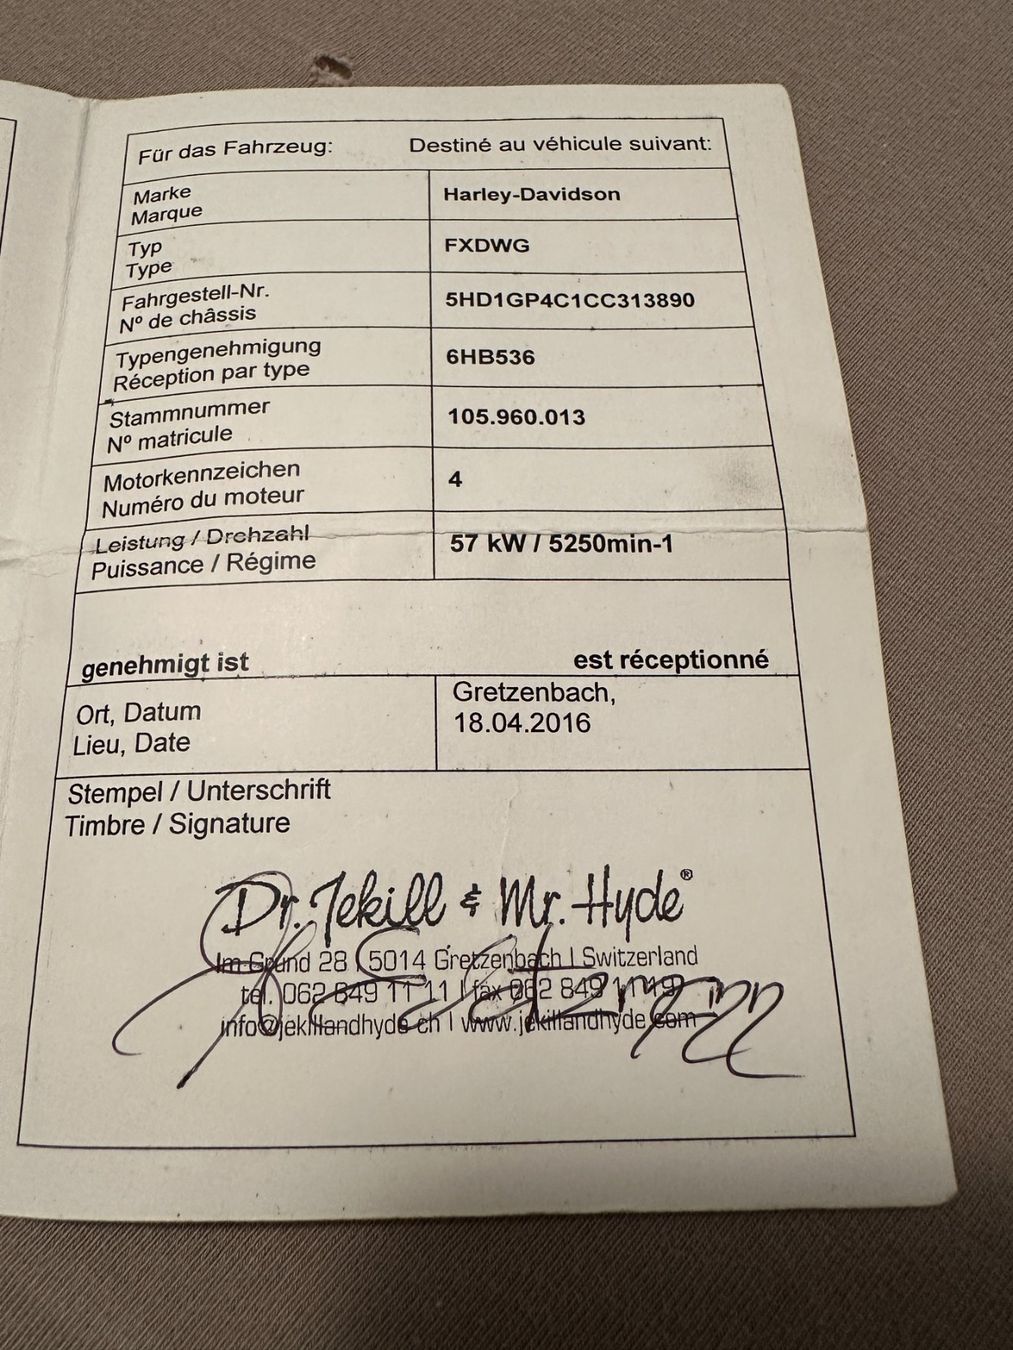 Für das Fahrzeug: Destiné au véhicule suivant:
Marke
Marque
Harley-Davidson
Typ
Type
FXDWG
Fahrgestell-Nr.
Nº de châssis
5HD1GP4C1CC313890
Typengenehmigung
Réception par type
6HB536
Stammnummer
Nº matricule
105.960.013
Motorkennzeichen
Numéro du moteur
4
Leistung / Drehzahl
Puissance / Régime
57 kW / 5250min-1
genehmigt ist est réceptionné
Ort, Datum
Lieu, Date
Gretzenbach,
18.04.2016
Stempel / Unterschrift
Timbre / Signature
Dr. Jekill & Mr. Hyde®
Im Grund 28 | 5014 Gretzenbach | Switzerland
tel. 062 849 11 11 | fax 062 849 11 19
info@jekillandhyde.ch | www.jekillandhyde.com